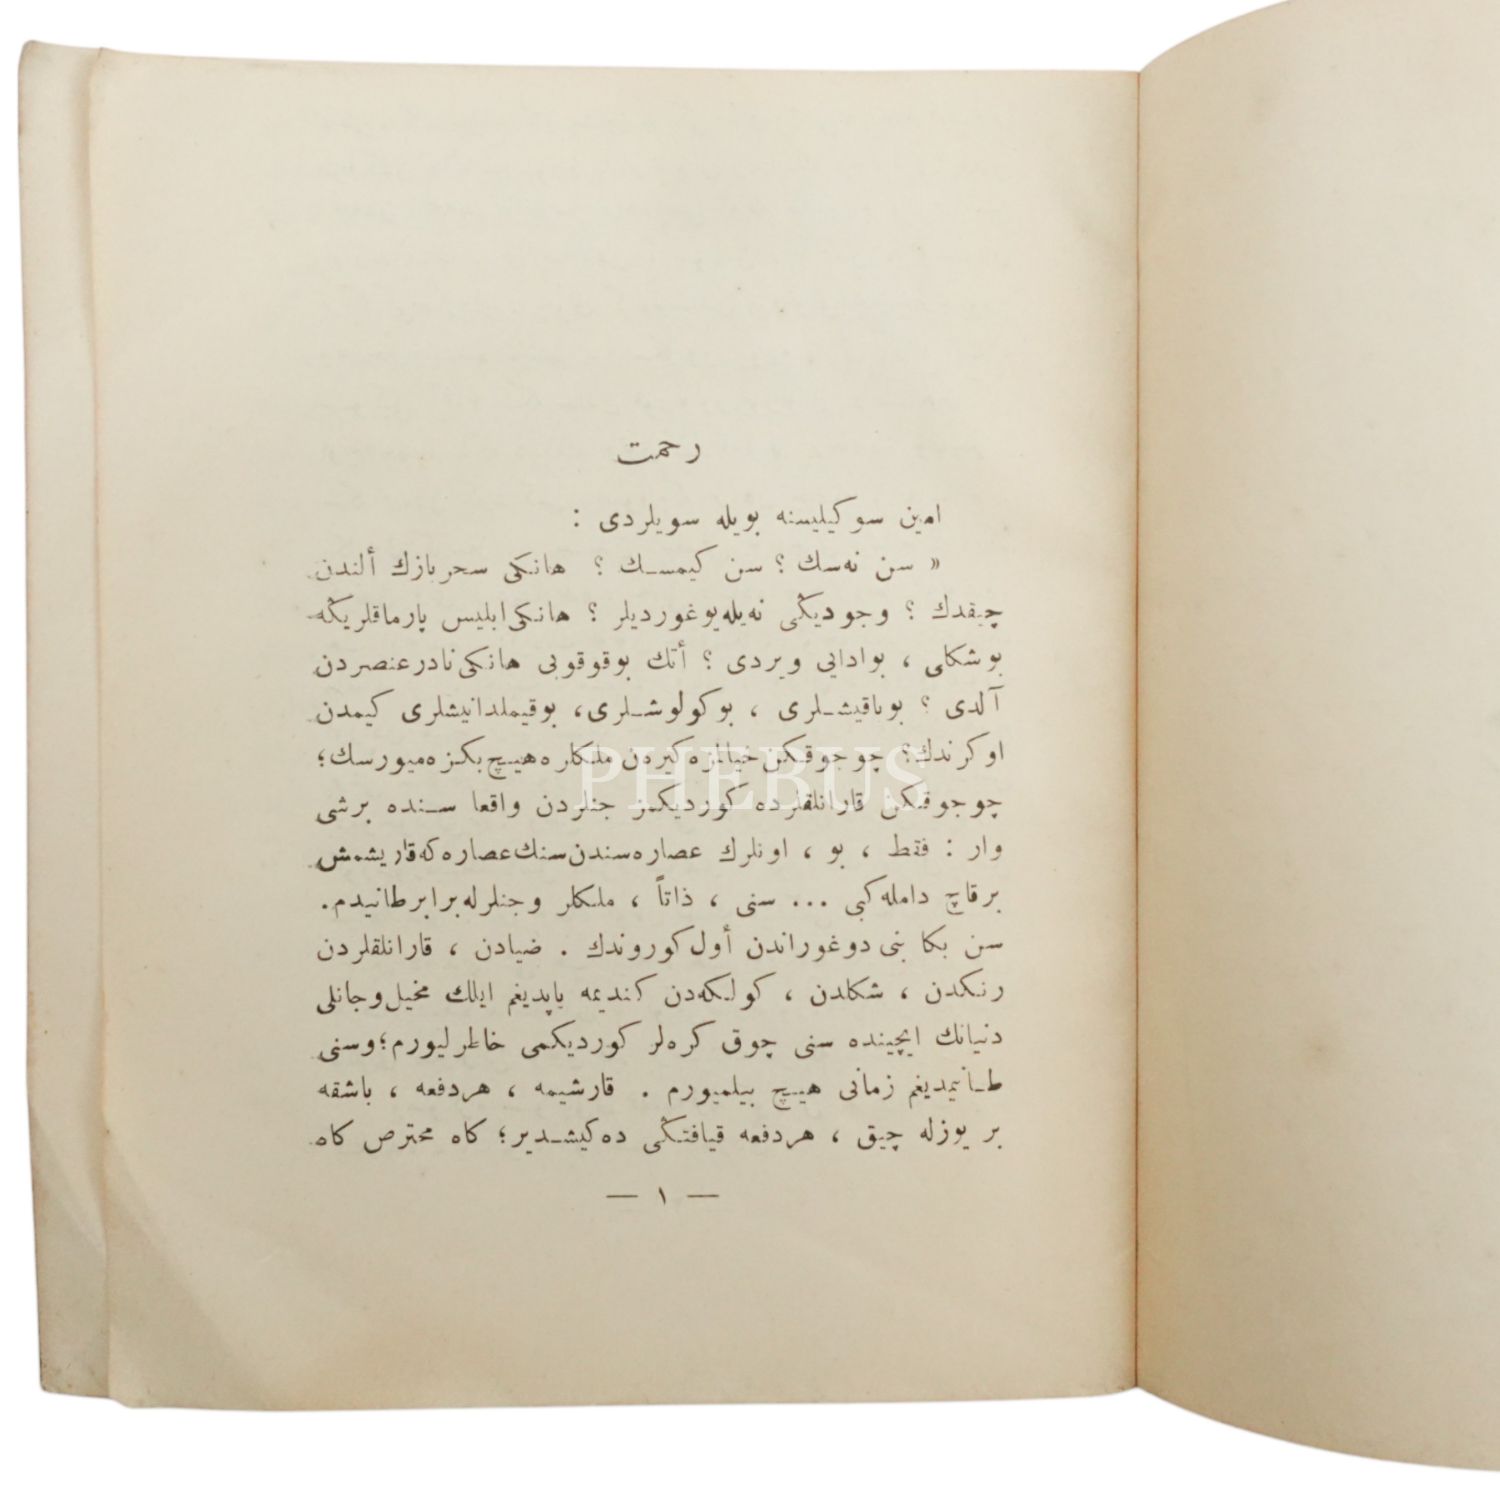 رحمت
امین سوكیلیسنه بویله سویلردی :
« سن نه‌سك ؟ سن كیمسك ؟ هانكی سحربازك ألندن
چیقدك ؟ وجودیڭی نه‌یله یوغوردیلر ؟ هانكی ابلیس پارماقلریڭه
بوشكلی ، بوادایی ویردی ؟ أتك بوقوقویی هانكی نادر عنصردن
آلدی ؟ بوباقیشلری ، بوكولوشلری، بوقیملدانیشلری كیمدن
اوكرندك؟ چوجوقكن خیالمزه كیره‌ن ملكلره هیچ بكزه‌میورسك؛
PHEBUS
چوجوقكن قارانلقلرده كوردیكمز جنلردن واقعا سنده برشی
وار : فقط ، بو ، اونلرك عصاره‌سندن سنك عصاره‌كه قاریشمش
برقاچ دامله كبی ... سنی ، ذاتاً ، ملكلر وجنلرله برابر طانیدم.
سن بكا بنی دوغوراندن أول كوروندك . ضیادن ، قارانلقلردن
رنكدن ، شكلدن ، كولكه‌دن كندیمه یاپدیغم ایلك مخیل وجانلی
دنیانك ایچینده سنی چوق كره‌لر كوردیكمی خاطرلیورم؛ وسنی
طانیمدیغم زمانی هیچ بیلمیورم . قارشیمه ، هردفعه ، باشقه
بر یوزله چیق ، هردفعه قیافتڭی ده‌كیشدیر؛ كاه محترص كاه
— ١ —